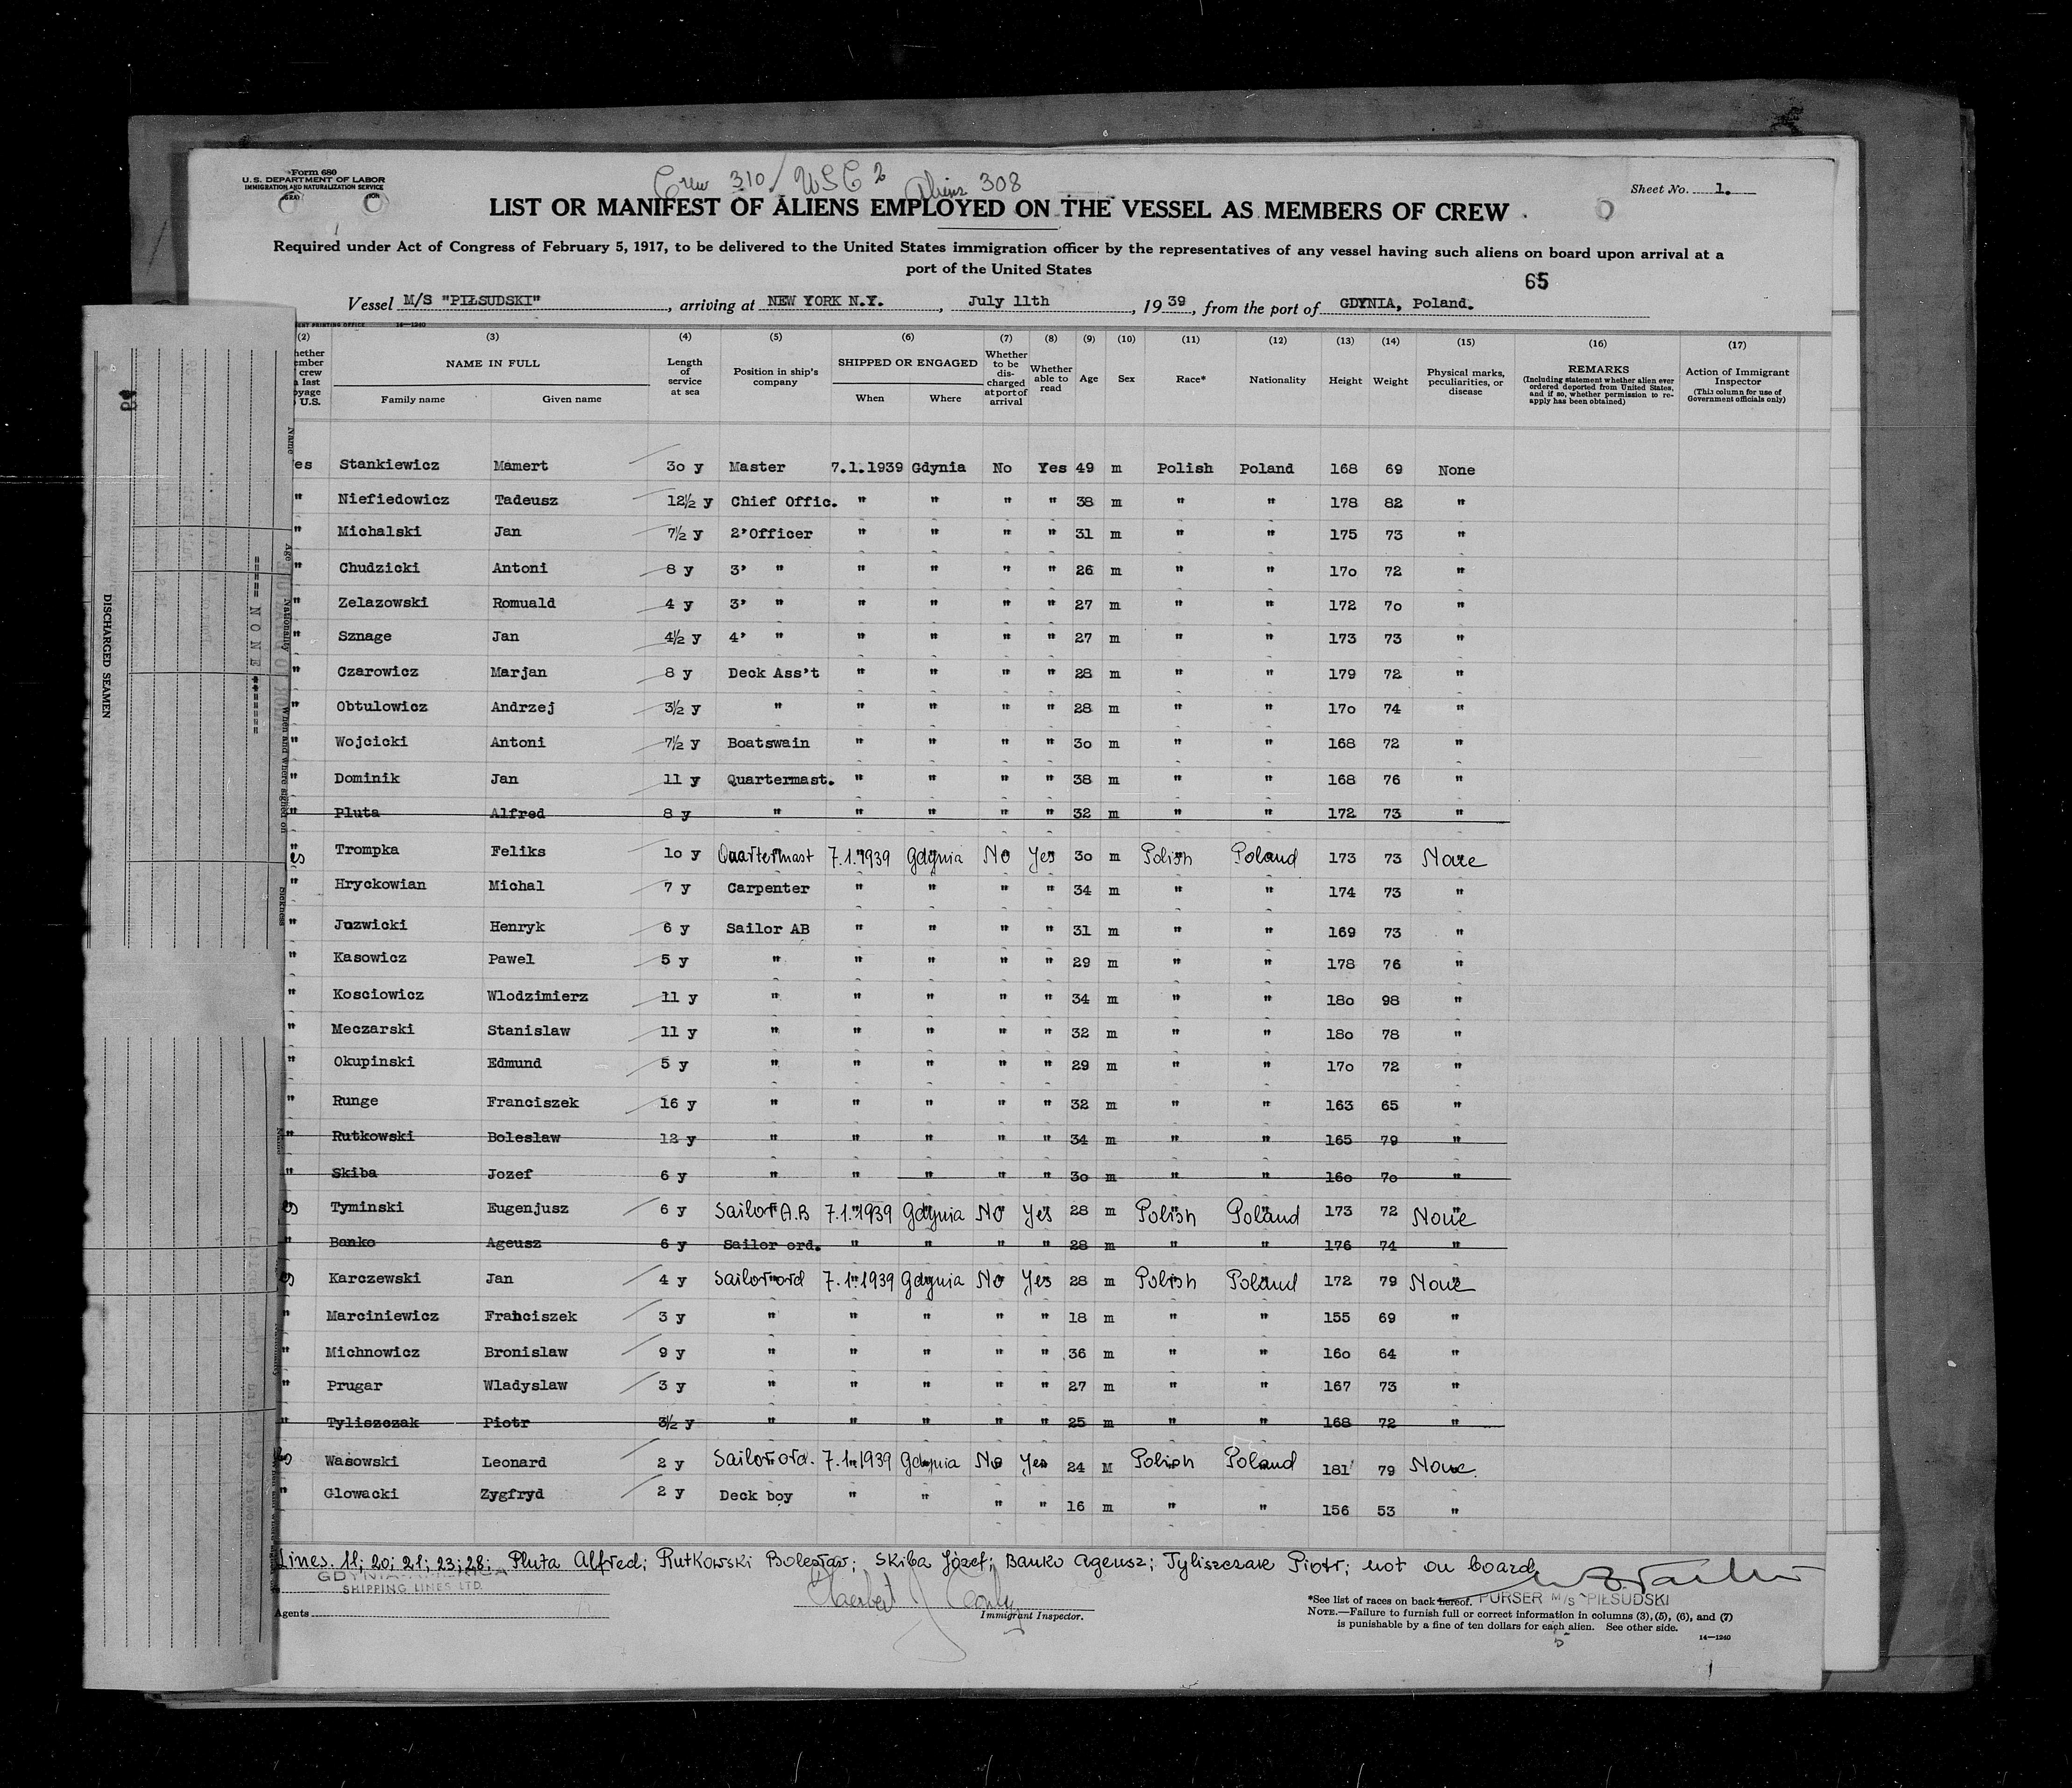 Form 680
U.S. DEPARTMENT OF LABOR
IMMIGRATION AND NATURALIZATION SERVICE
Crew 310 / USC 2 Aliens 308
Sheet No. 1.
LIST OR MANIFEST OF ALIENS EMPLOYED ON THE VESSEL AS MEMBERS OF CREW
Required under Act of Congress of February 5, 1917, to be delivered to the United States immigration officer by the representatives of any vessel having such aliens on board upon arrival at a
port of the United States
65
Vessel M/S "PIŁSUDSKI", arriving at NEW YORK N.Y., July 11th, 1939, from the port of GDYNIA, Poland.
(2) (3) (4) (5) (6) (7) (8) (9) (10) (11) (12) (13) (14) (15) (16) (17)
NAME IN FULL
Family name Given name
Length of service at sea
Position in ship's company
SHIPPED OR ENGAGED
When Where
Whether to be discharged at port of arrival
Whether able to read
Age Sex Race* Nationality Height Weight
Physical marks, peculiarities, or disease
REMARKS
(Including statement whether alien ever ordered deported from United States, and if so, whether permission to reapply has been obtained)
Action of Immigrant Inspector
(This column for use of Government officials only)
es Stankiewicz Mamert 30 y Master 7.1.1939 Gdynia No Yes 49 m Polish Poland 168 69 None
" Niefiedowicz Tadeusz 12½ y Chief Offic. " " " " 38 m " " 178 82 "
" Michalski Jan 7½ y 2'Officer " " " " 31 m " " 175 73 "
" Chudzicki Antoni 8 y 3' " " " " " 26 m " " 170 72 "
" Zelazowski Romuald 4 y 3' " " " " " 27 m " " 172 70 "
" Sznage Jan 4½ y 4' " " " " " 27 m " " 173 73 "
" Czarowicz Marjan 8 y Deck Ass't " " " " 28 m " " 179 72 "
" Obtulowicz Andrzej 3½ y " " " " " 28 m " " 170 74 "
" Wojcicki Antoni 7½ y Boatswain " " " " 30 m " " 168 72 "
" Dominik Jan 11 y Quartermast. " " " " 38 m " " 168 76 "
" Pluta Alfred 8 y " " " " " 32 m " " 172 73 "
es Trompka Feliks 10 y Quartermast 7.1.1939 Gdynia No Yes 30 m Polish Poland 173 73 None
" Hryckowian Michal 7 y Carpenter " " " " 34 m " " 174 73 "
" Juzwicki Henryk 6 y Sailor AB " " " " 31 m " " 169 73 "
" Kasowicz Pawel 5 y " " " " " 29 m " " 178 76 "
" Kosciowicz Wlodzimierz 11 y " " " " " 34 m " " 180 98 "
" Meczarski Stanislaw 11 y " " " " " 32 m " " 180 78 "
" Okupinski Edmund 5 y " " " " " 29 m " " 170 72 "
" Runge Franciszek 16 y " " " " " 32 m " " 163 65 "
" Rutkowski Boleslaw 12 y " " " " " 34 m " " 165 79 "
" Skiba Jozef 6 y " " " " " 30 m " " 160 70 "
s Tyminski Eugenjusz 6 y Sailor A.B 7.1.1939 Gdynia No Yes 28 m Polish Poland 173 72 None
" Banko Ageusz 6 y Sailor ord. " " " " 28 m " " 176 74 "
s Karczewski Jan 4 y Sailor ord 7.1.1939 Gdynia No Yes 28 m Polish Poland 172 79 None
" Marciniewicz Franciszek 3 y " " " " " 18 m " " 155 69 "
" Michnowicz Bronislaw 9 y " " " " " 36 m " " 160 64 "
" Prugar Wladyslaw 3 y " " " " " 27 m " " 167 73 "
" Tyliszczak Piotr 3½ y " " " " " 25 m " " 168 72 "
s Wasowski Leonard 2 y Sailor ord. 7.1.1939 Gdynia No Yes 24 M Polish Poland 181 79 None
" Glowacki Zygfryd 2 y Deck boy " " " " 16 m " " 156 53 "
Lines. 11; 20; 21; 23; 28; Pluta Alfred; Rutkowski Bolesław; Skiba Józef; Banko Ageusz; Tyliszczak Piotr; not on board
GDYNIA AMERICA
SHIPPING LINES LTD.
Agents
Immigrant Inspector.
PURSER M/S PIŁSUDSKI
*See list of races on back hereof.
NOTE.—Failure to furnish full or correct information in columns (3), (5), (6), and (7)
is punishable by a fine of ten dollars for each alien. See other side.
14—1240
DISCHARGED SEAMEN
===== N O N E =====